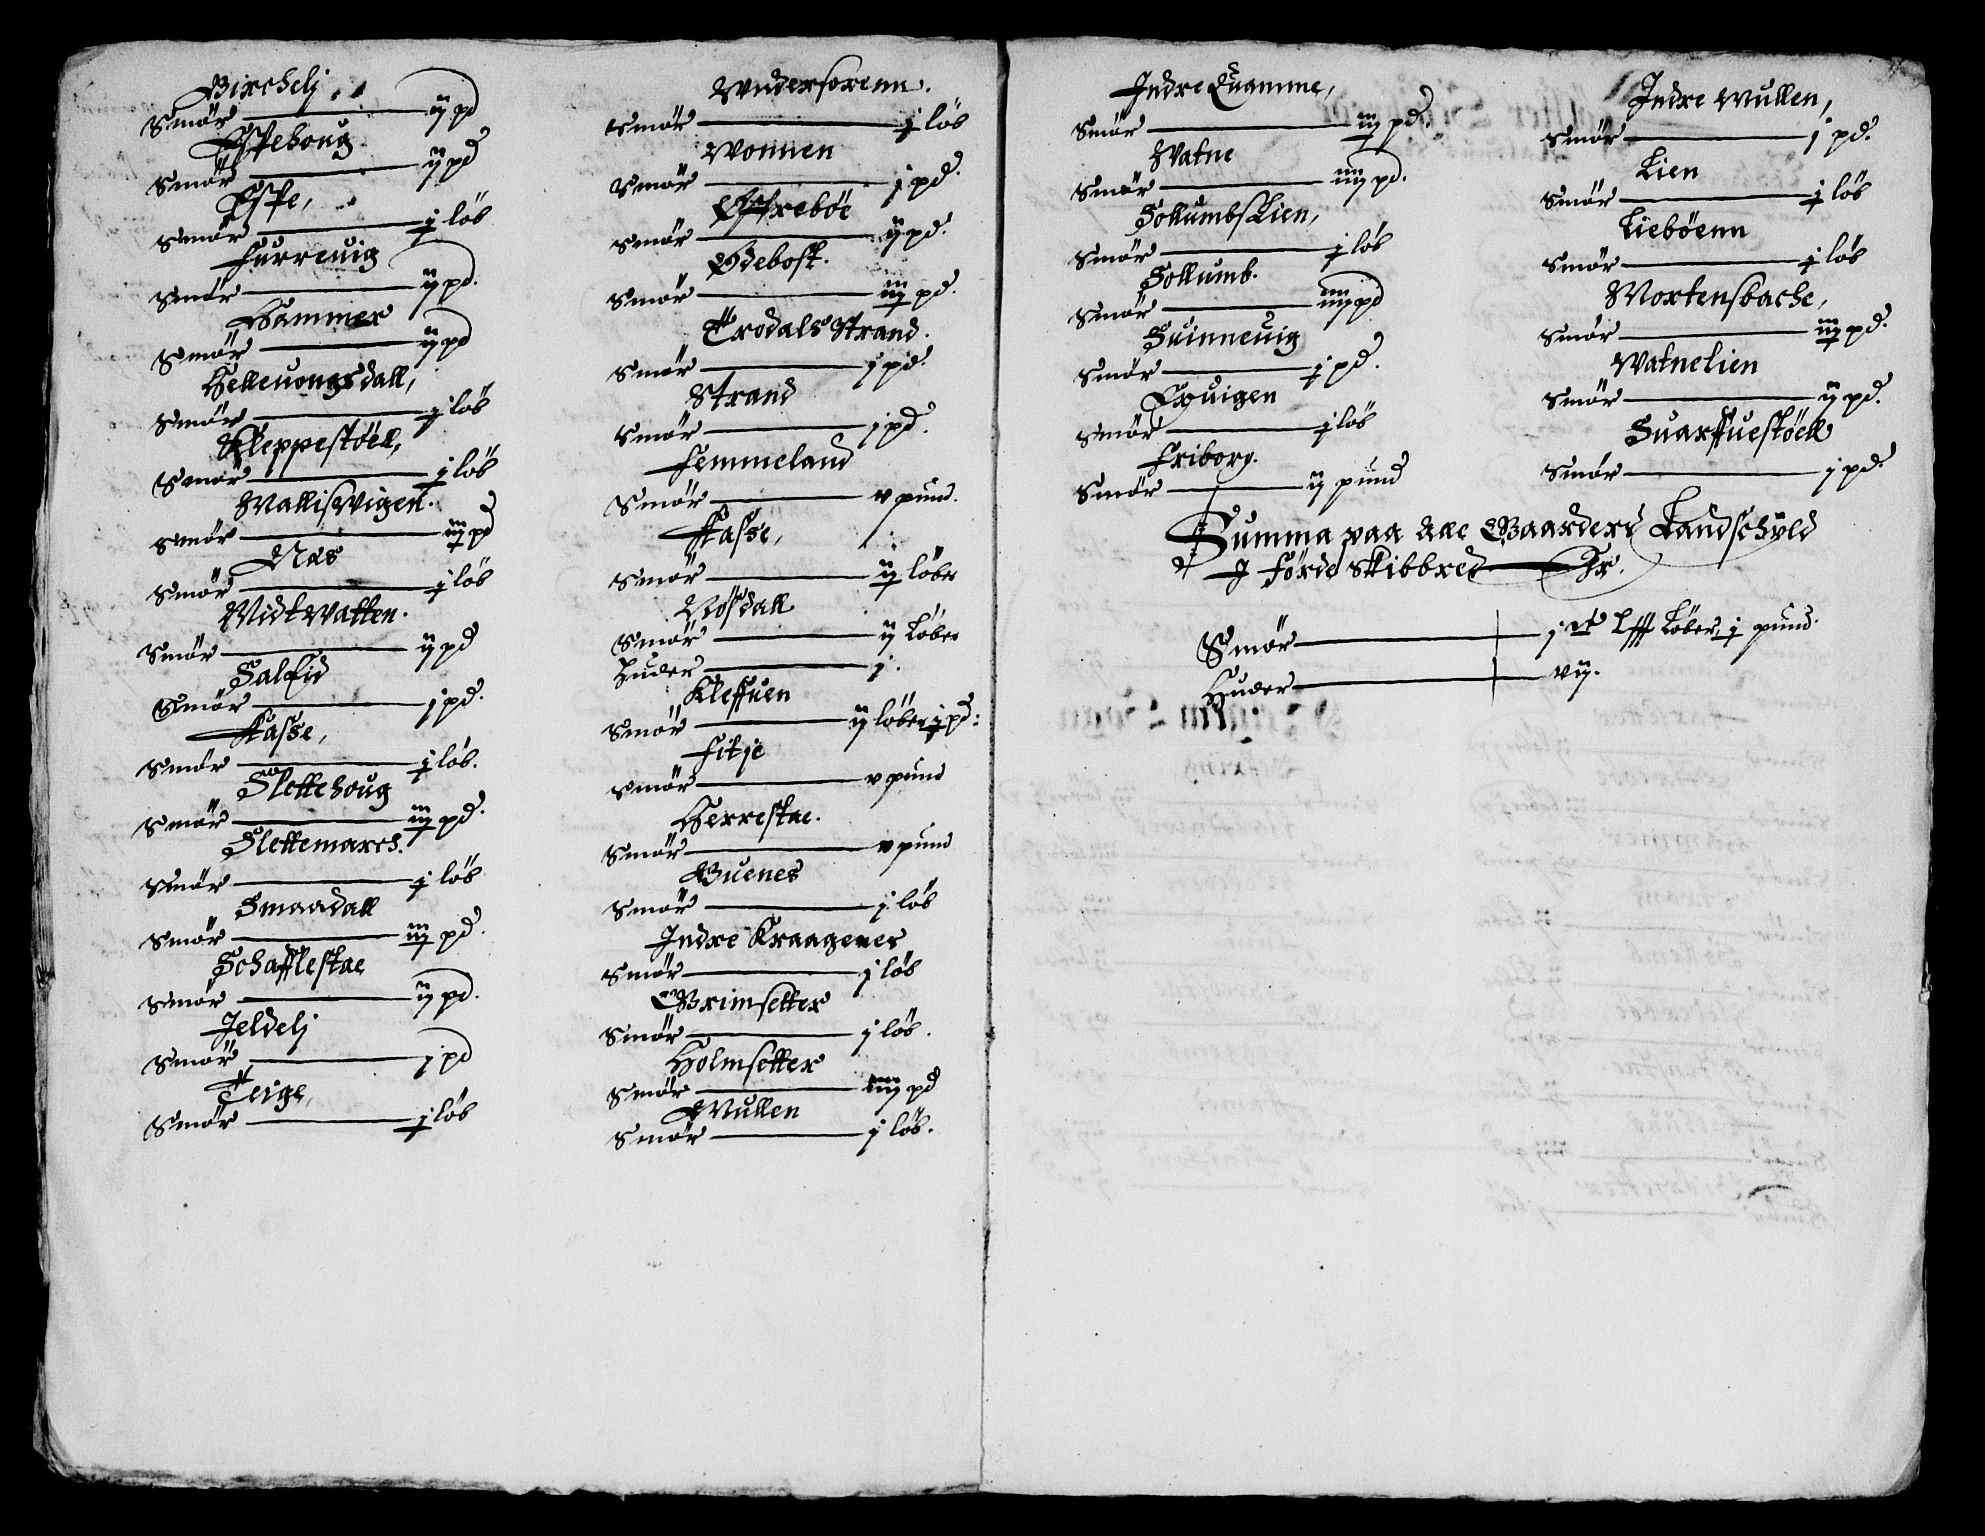 Birchelj
Smör ij pd
Espehoug
Smör ij pd
Espe,
Smör j löb
Furreuig
Smör ij pd.
Hammer
Smör ij pd
Helleuongsdall,
Smör j löb
Kleppestöell,
Smör j löb
Walliswigen.
Smör iij pd
Nes
Smör j löb
Midtwatten.
Smör ij pd
Salfid
Smör j pd.
Aasse,
Smör j löb.
Slettehoug
Smör iij pd.
Slettemarch.
Smör j löb
Smaadall
Smör iij pd.
Schafflestae
Smör ij pd.
Jeldelj
Smör j pd
Teige,
Smör j löb
Wndersorenn.
Smör j löb
Wonnen
Smör j pd.
Efreböe
Smör ij pd.
Ødebost.
Smör iij pd.
Trodals Strand.
Smör j pd.
Strand
Smör j pd.
Femmeland
Smör v pund.
Aasse,
Smör ij löber
Nosdall
Smör ij Löber
Huder j.
Kleffuen
Smör ij löber j pd:
Fitje
Smör v pund
Herrestae.
Smör v pund
Buenes
Smör j löb
Indre Kraagenes
Smör j löb
Grimsetter
Smör j löb.
Holmsetter
Smör iiij pd
Wullen
Smör j löb.
Indre Quamme,
Smör iij pd.
Watne
Smör iiij pd.
Sollumbslien,
Smör j löb
Sollumb.
Smör iiij pd
Suinneuig
Smör j pd.
Truigen
Smör j löb
Friborg.
Smör ij pund
Indre Wullen,
Smör j pd.
Lien
Smör j löb
Lieböenn
Smör j löb
Mortensbache,
Smör iij pd.
Watnelien
Smör ij pd.
Suarffuestöell
Smör j pd.
Summa paa alle Gaarders Landschyld
I Förde Skibbred Er.
Smör Löber, j pund.
Huder vij.